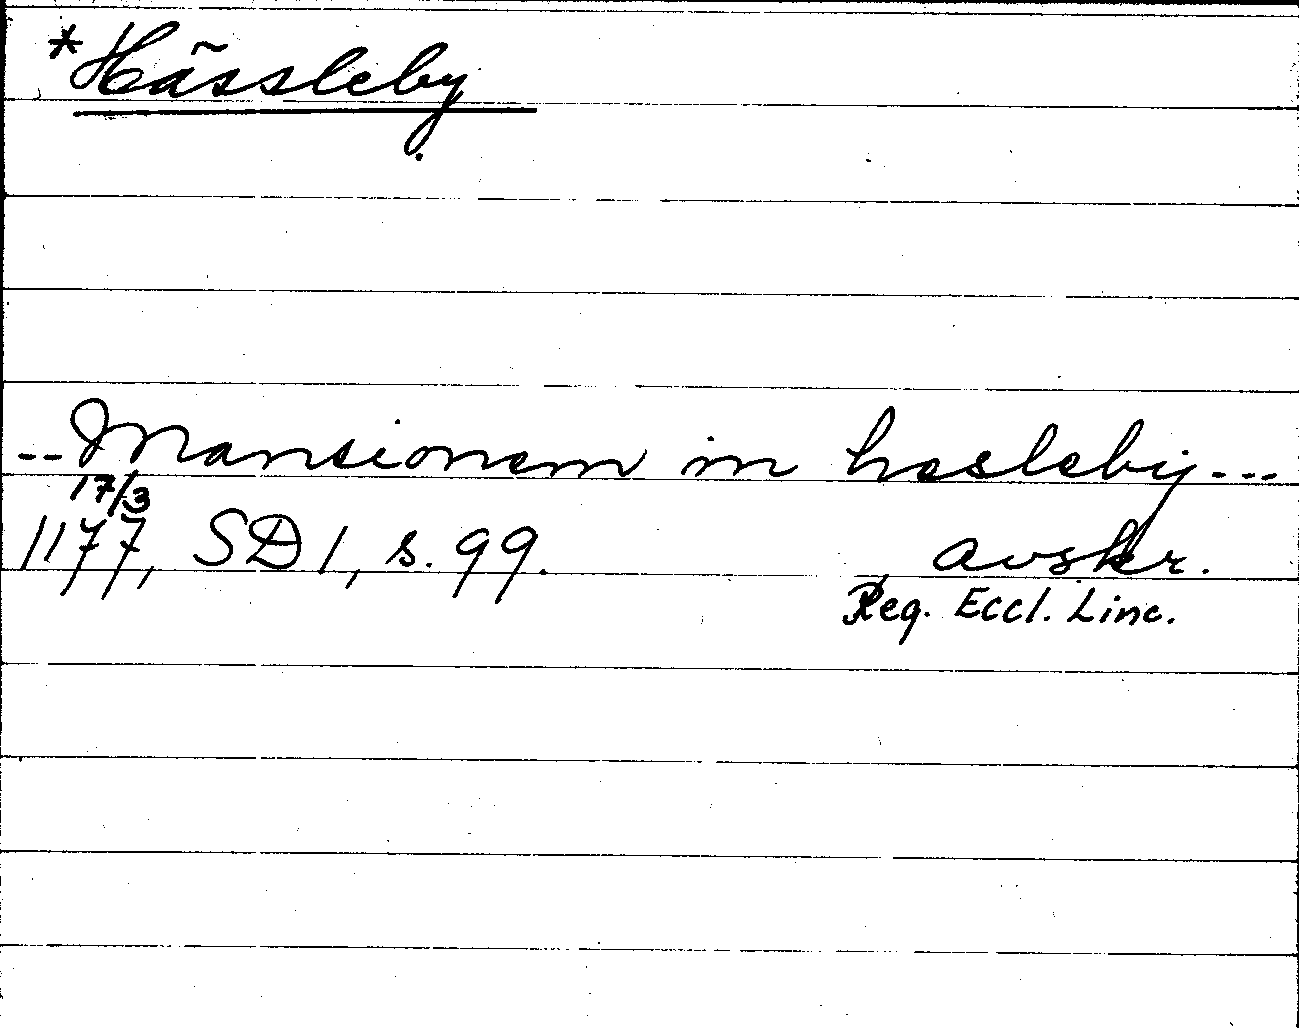 *Hässleby
--Mansionem in hasleby---
17/3
1177, SD 1, s. 99. avskr.
Reg. Eccl. Linc.